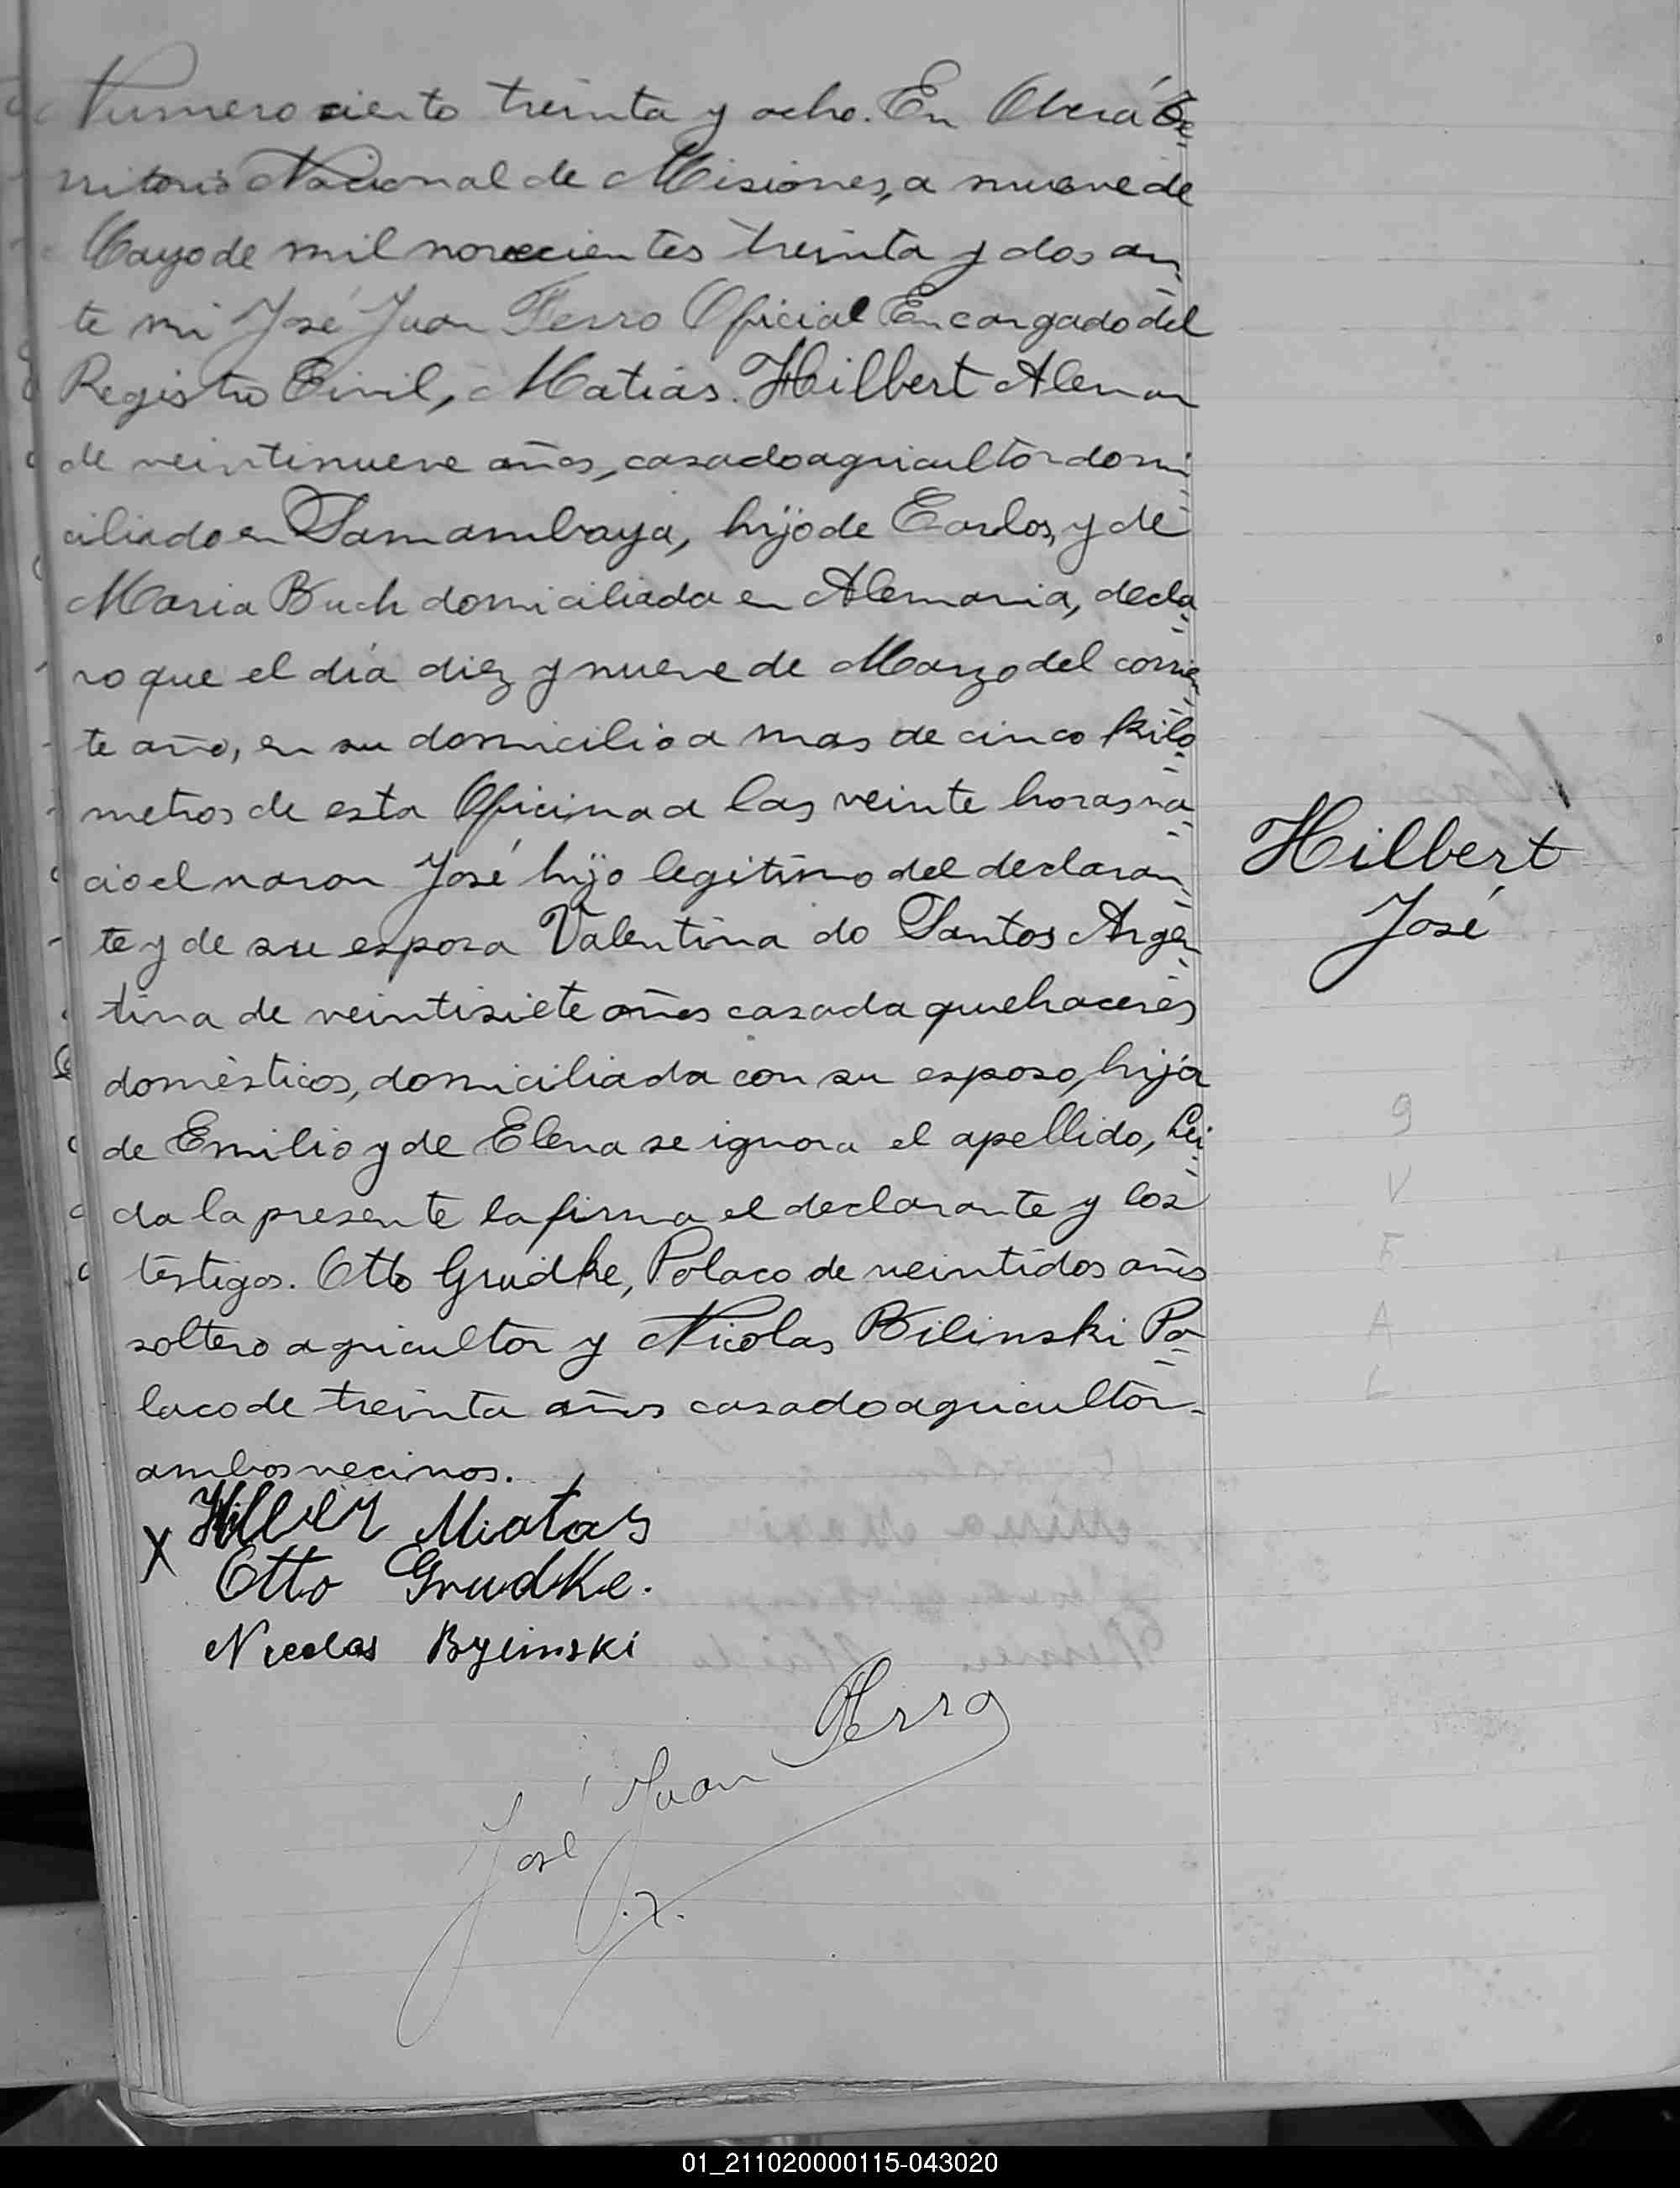 Numero ciento treinta y ocho. En Oberá Te
rritorio Nacional de Misiones, a nueve de
Mayo de mil novecientos treinta y dos an
te mi José Juan Ferro Oficial Encargado del
Registro Civil, Matias Hilbert Aleman
de veintinueve años, casado agricultor domi
ciliado en Samambaya, hijo de Carlos, y de
Maria Buch domiciliada en Alemania, decla
ro que el día diez y nueve de Marzo del corrien
te año, en su domicilio a mas de cinco kilo
metros de esta Oficina a las veinte horas na
cio el varon José hijo legitimo del declaran
te y de su esposa Valentina do Santos Argen
tina de veintisiete años casada quehaceres
domésticos, domiciliada con su esposo, hija
de Emilio y de Elena se ignora el apellido, Lei
da la presente la firma el declarante y los
testigos. Otto Grudke, Polaco de veintidos años
soltero agricultor y Nicolas Bilinski Po
laco de treinta años casado agricultor
ambos vecinos.
Hilbert
José
9
V
F
A
L
X Hilbert Miatas
Otto Grudke.
Nicolas Bylinski
José Juan Ferro
01_211020000115-043020